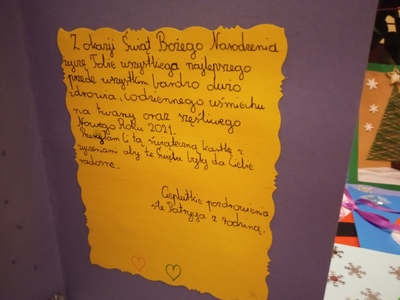 Z okazji Świąt Bożego Narodzenia
życzę Tobie wszystkiego najlepszego
przede wszystkim bardzo dużo
zdrowia, codziennego uśmiechu
na twarzy oraz szęśliwego
Nowego Roku 2021.
Przesyłam Ci tą świąteczną kartkę z
życzeniami aby te Święta były dla Ciebie
radosne.
Cieplutkie pozdrowienia
śle Patrycja z rodziną.